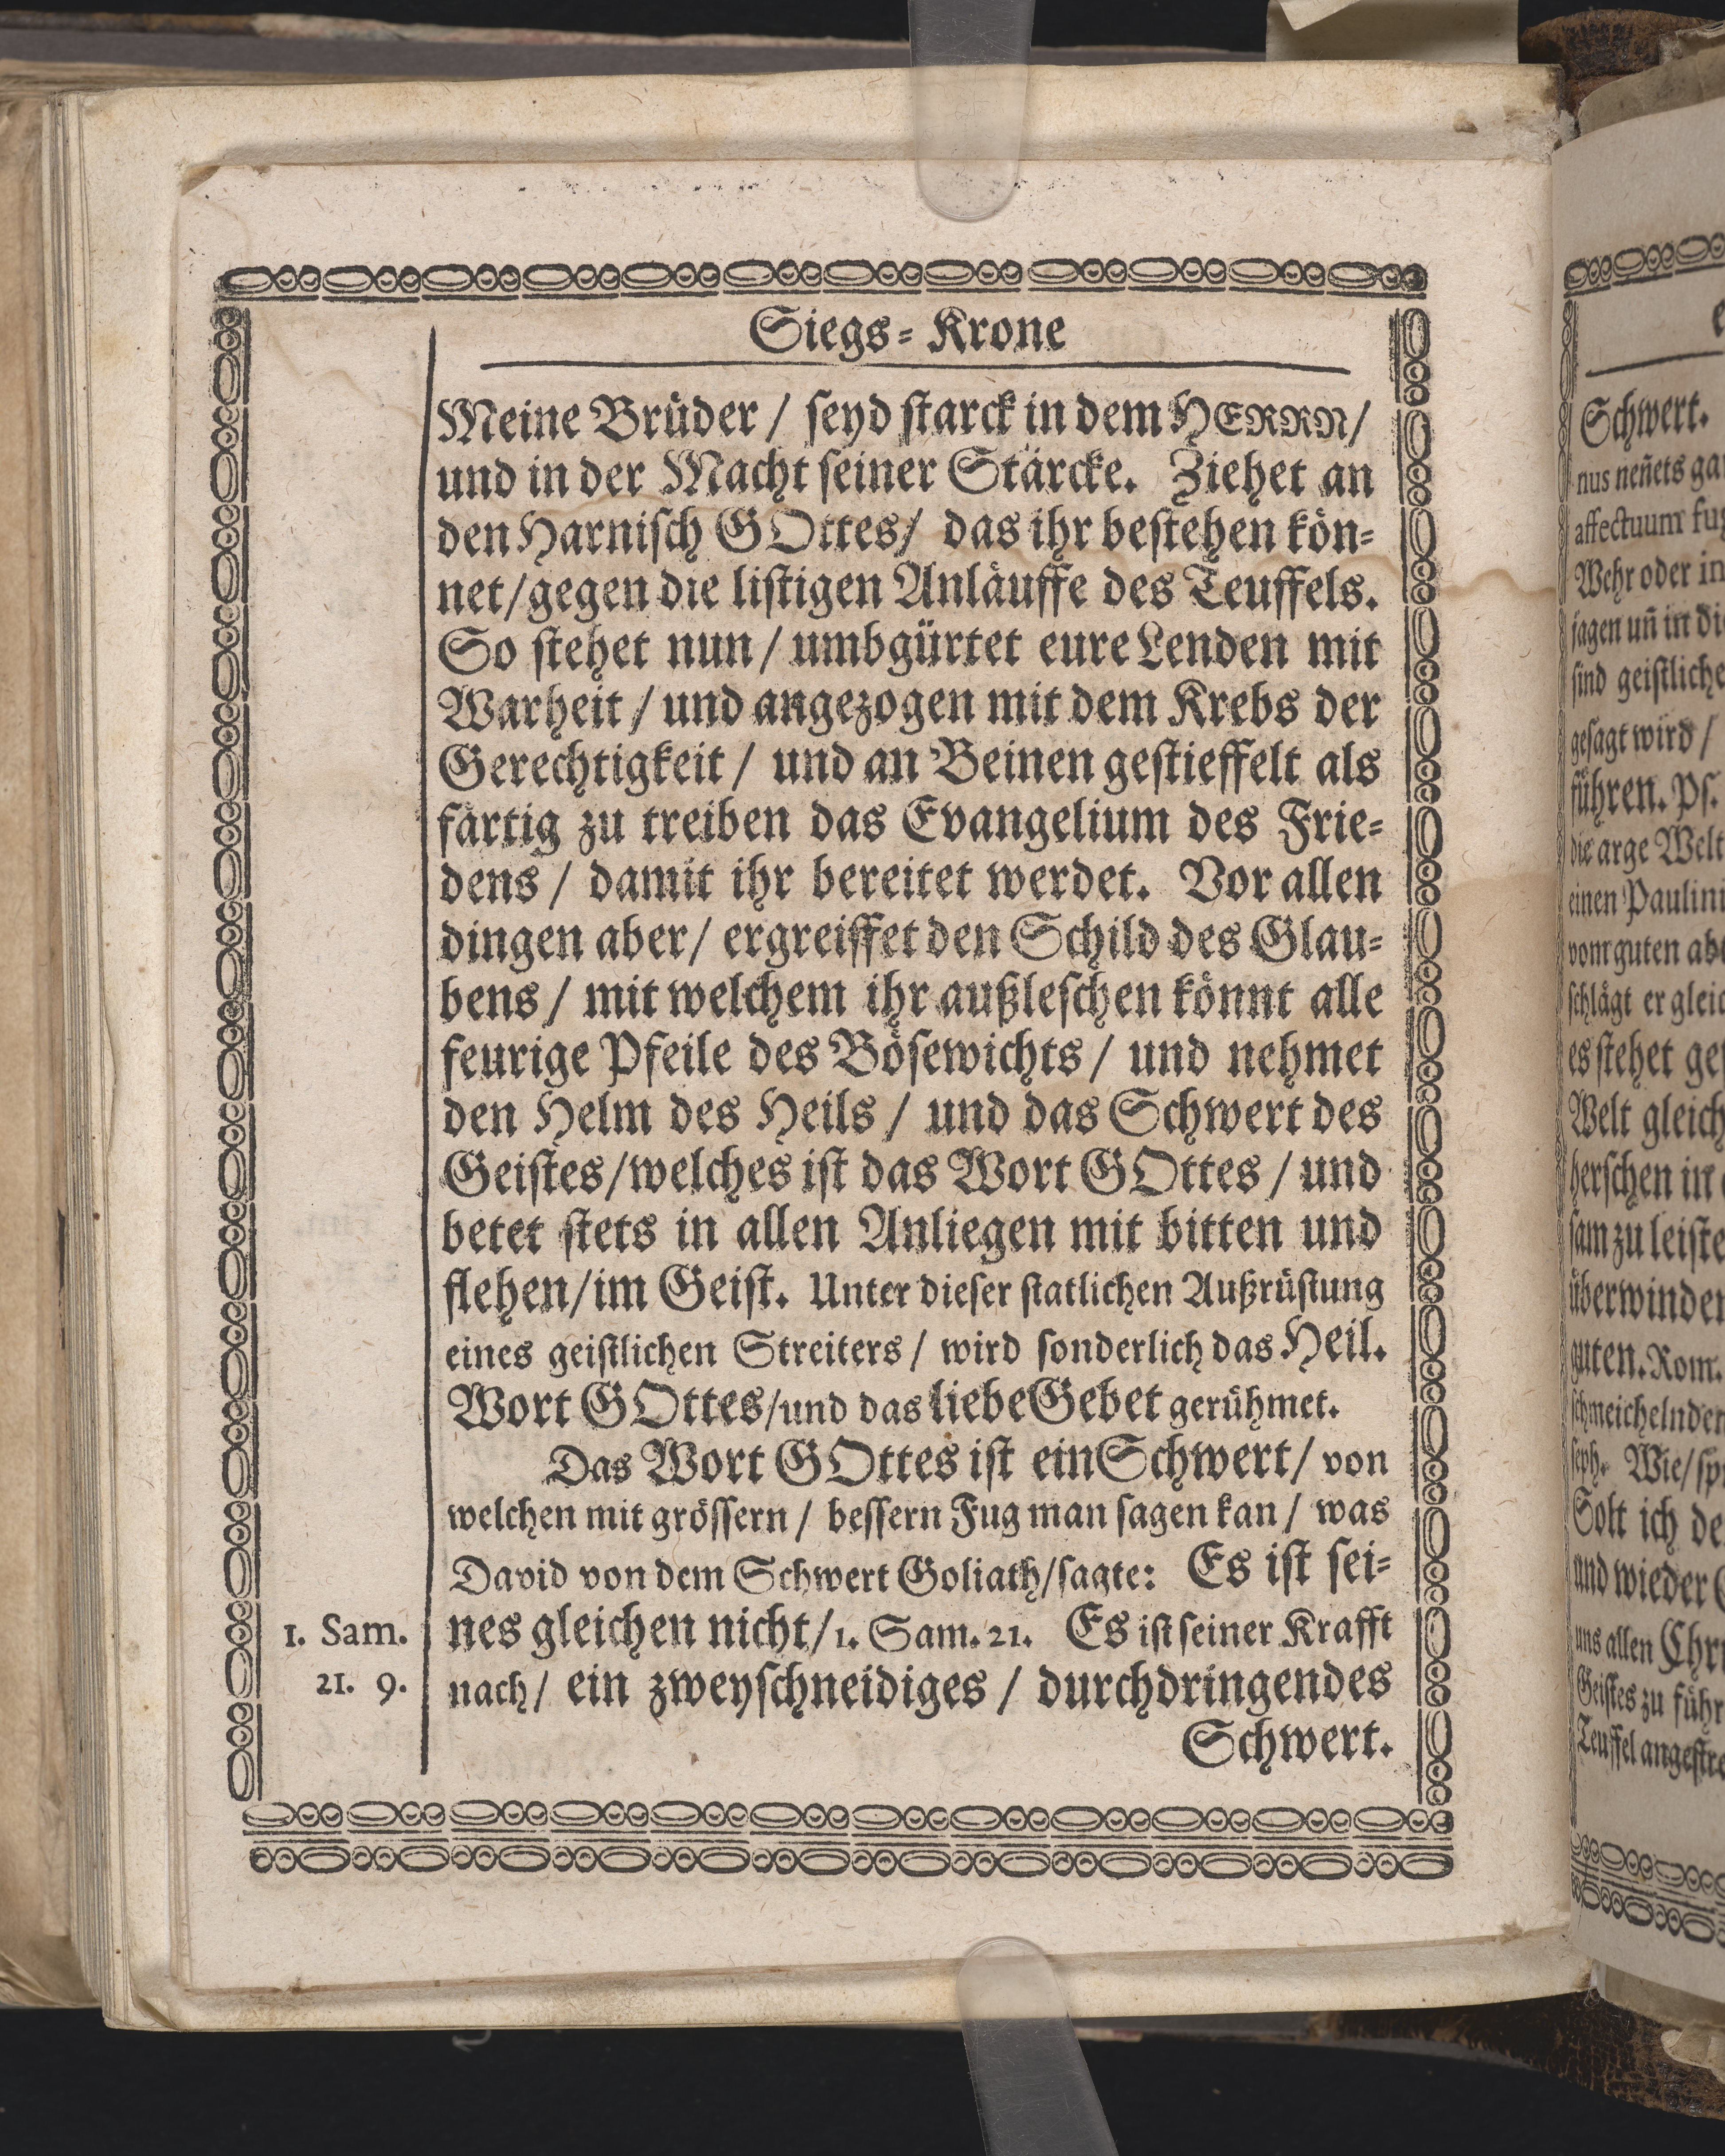 Siegs-Krone
Meine Brüder / seyd starck in dem HERRN/
und in der Macht seiner Stärcke. Ziehet an
den Harnisch GOttes/ das ihr bestehen kön-
net/gegen die listigen Anläuffe des Teuffels.
So stehet nun / umbgürtet eure Lenden mit
Warheit / und angezogen mit dem Krebs der
Gerechtigkeit / und an Beinen gestieffelt als
färtig zu treiben das Evangelium des Frie-
dens / damit ihr bereitet werdet. Vor allen
dingen aber/ ergreiffet den Schild des Glau-
bens / mit welchem ihr außleschen könnt alle
feurige Pfeile des Bösewichts / und nehmet
den Helm des Heils / und das Schwert des
Geistes/welches ist das Wort GOttes / und
betet stets in allen Anliegen mit bitten und
flehen/im Geist. Unter dieser statlichen Außrüstung
eines geistlichen Streiters / wird sonderlich das Heil.
Wort GOttes/und das liebe Gebet gerühmet.
Das Wort GOttes ist ein Schwert/ von
welchen mit grössern / bessern Fug man sagen kan / was
David von dem Schwert Goliath/sagte: Es ist sei-
1. Sam. nes gleichen nicht/1. Sam. 21. Es ist seiner Krafft
21. 9. nach/ ein zweyschneidiges / durchdringendes
Schwert.
Schwert.
nus neñets
affectuum
Wehr oder in
jagen uñ in
sind geistliche
gesagt wird /
führen. Ps.
die arge Welt
einen
vom guten
schlägt er
es stehet
Welt
herschen in
sam zu
überwinden
guten. Rom.
Wie/
Solt ich
und wieder
uns allen
Geistes zu
Teuffel